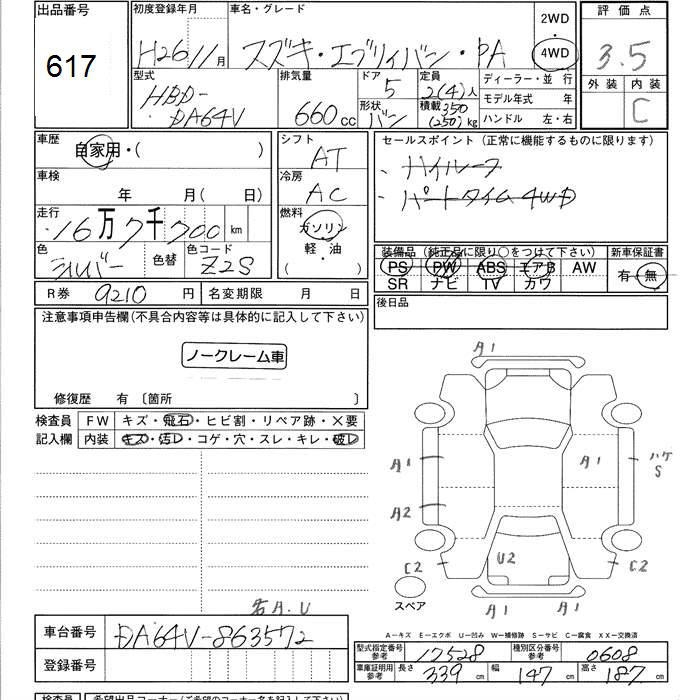 出品番号 初度登録年月 車名・グレード 2WD 評価点
617 H26 11月 スズキ・エブリィバン・PA 4WD 3.5
型式 排気量 ドア 定員 ディーラー・並行 外装 内装
HBD-DA64V 660cc 5 2(4)人 モデル年式 年 C
形状 バン 積載 350 (250)kg ハンドル 左・右
車歴 自家用・( ) シフト AT セールスポイント (正常に機能するものに限ります)
車検 年 月( 日) 冷房 AC ・ハイルーフ
・パートタイム4WD
走行 16万7千700km 燃料 ガソリン 軽・油 ( )
色 シルバー 色替 色コード Z2S
装備品 (純正品に限り○をつけて下さい) 新車保証書
PS PW ABS エアB AW 有・無
SR ナビ TV カワ
R券 9210円 名変期限 月 日 後日品
注意事項申告欄(不具合内容等は具体的に記入して下さい)
ノークレーム車
修復歴 有 〔箇所 〕
検査員 FW キズ・飛石・ヒビ割・リペア跡・X要
記入欄 内装 キズ・汚レ・コゲ・穴・スレ・キレ・破レ
A1
A1 A1 ハゲ S
A2
C2 U2 C2
スペア A1 A1
A.U
A−キズ E−エクボ U−凹み W−補修跡 S−サビ C−腐食 XX−交換済
車台番号 DA64V-863572
型式指定番号 参考 17528 種別区分番号 参考 0608
登録番号
車庫証明用 参考 長さ 339cm 幅 147cm 高さ 187cm
検査員 希望出品コーナー(ご希望のコーナー名を記入下さい)